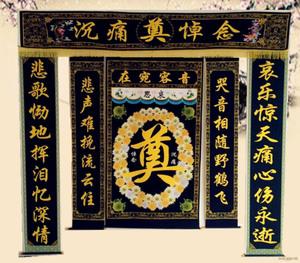 沉痛奠悼念
音容宛在
哀思
奠
哀乐惊天痛心伤永逝
悲歌恸地挥泪忆深情
哭音相随野鹤飞
悲声难挽流云住